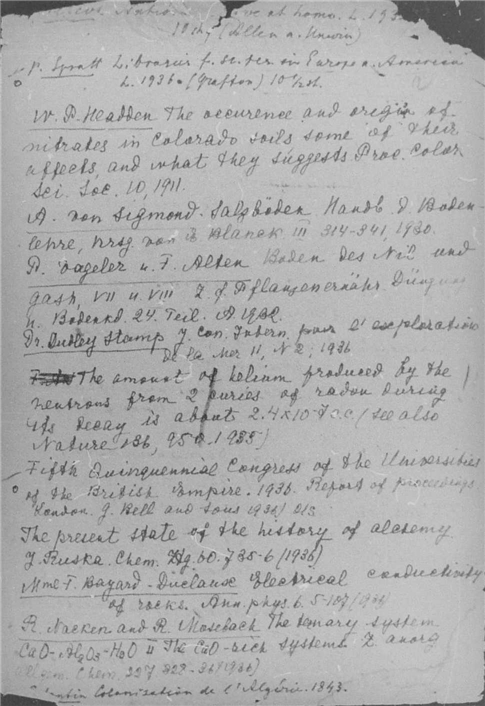 at home. L. 193
10sh, (Allen a. Unwin)
P. Spratt Libraries f. in Europe a. American
L. 1936 (Grafton) 10½sh.
W. P. Headden The occurence and origin of
nitrates in Colorado soils some of their
affects, and what they suggests Proc. Color
Sci. Soc. 10, 1911.
A. von Sigmond. Salzböden Handb. d. Boden-
lehre, hrsg. von E Blanck III 314-341, 1930.
P. Vageler u. F. Alten Boden des Nil und
gash, VII u. VIII Z. f. Pflanzenernähr Düngung
u. Bodenkd. 24. Teil. A 1932
Dr. Dudley Stamp J. Con. Intern. pour l'exploration
de la Mer 11, N2, 1936
The amount of helium produced by the
neutrons from 2 curies of radon during
its decay is about 2.4×10 c.c. (see also
Nature 136, 950. 1935)
Fifth Quinquennial Congress of the Universities
of the British Empire. 1936. Report of proceedings
London. G. Bell and Sons 1936)
The present state of the history of alchemy
J. Ruska. Chem. Ztg. 60. 735-6 (1936)
Mme T. Bayard-Duclaux Electrical conductivity
of rocks. Ann. phys. 6. 5-107 (1936)
R. Nacken and R. Mosebach The ternary system
CaO-Al2O3-H2O II The CaO-rich systems Z anorg
Chem. 227 328-36 (1936)
Colonisation de l'Algérie. 1843.